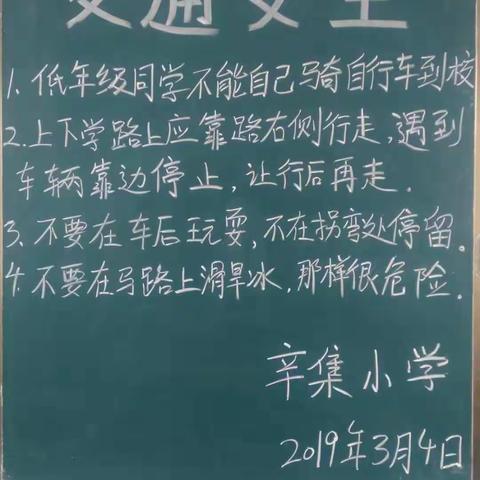 交通安全
1. 低年级同学不能自己骑自行车到校
2. 上下学路上应靠路右侧行走,遇到
车辆靠边停止,让行后再走.
3. 不要在车后玩耍,不在拐弯处停留。
4. 不要在马路上滑旱冰,那样很危险.
辛集小学
2019年3月4日